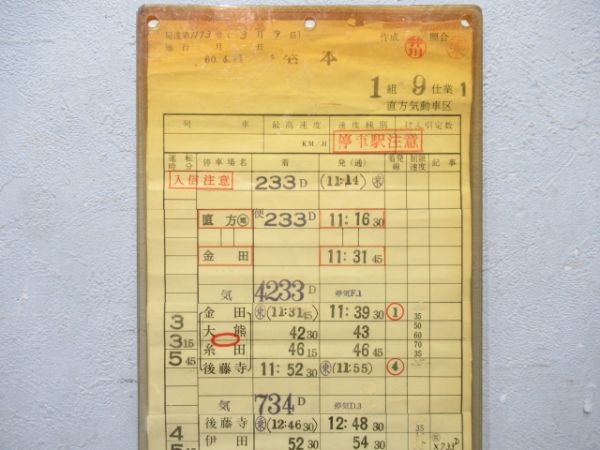 局達第1123号(3月9日)
施行 月 日
60.4.
岩 本
作成 照合
1組 9 仕業 1
直方気動車区
列 車 最高速度 速度種別 けん引定数
KM/H
停車駅注意
運転時分 停車場名 着 発(通) 着発線 制限速度 記事
入信注意 233D (11:14)
直方 便 233D 11:16 30
金田 11:31 45
気 4233D 停気F.1
金田 (11:31 45) 11:39 30 1 35
3 大熊 42 30 43 50 60
3 15 糸田 46 15 46 45 70
5 45 後藤寺 11:52 30 (11:55) 4 35
気 734D 停気D.3
後藤寺 (12:46 30) 12:48 30 35
4 伊田 52 30 54 30 ×233D
5